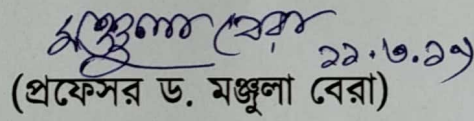 মঞ্জুলা বেরা
২২.৩.২১
(প্রফেসর ড. মঞ্জুলা বেরা)